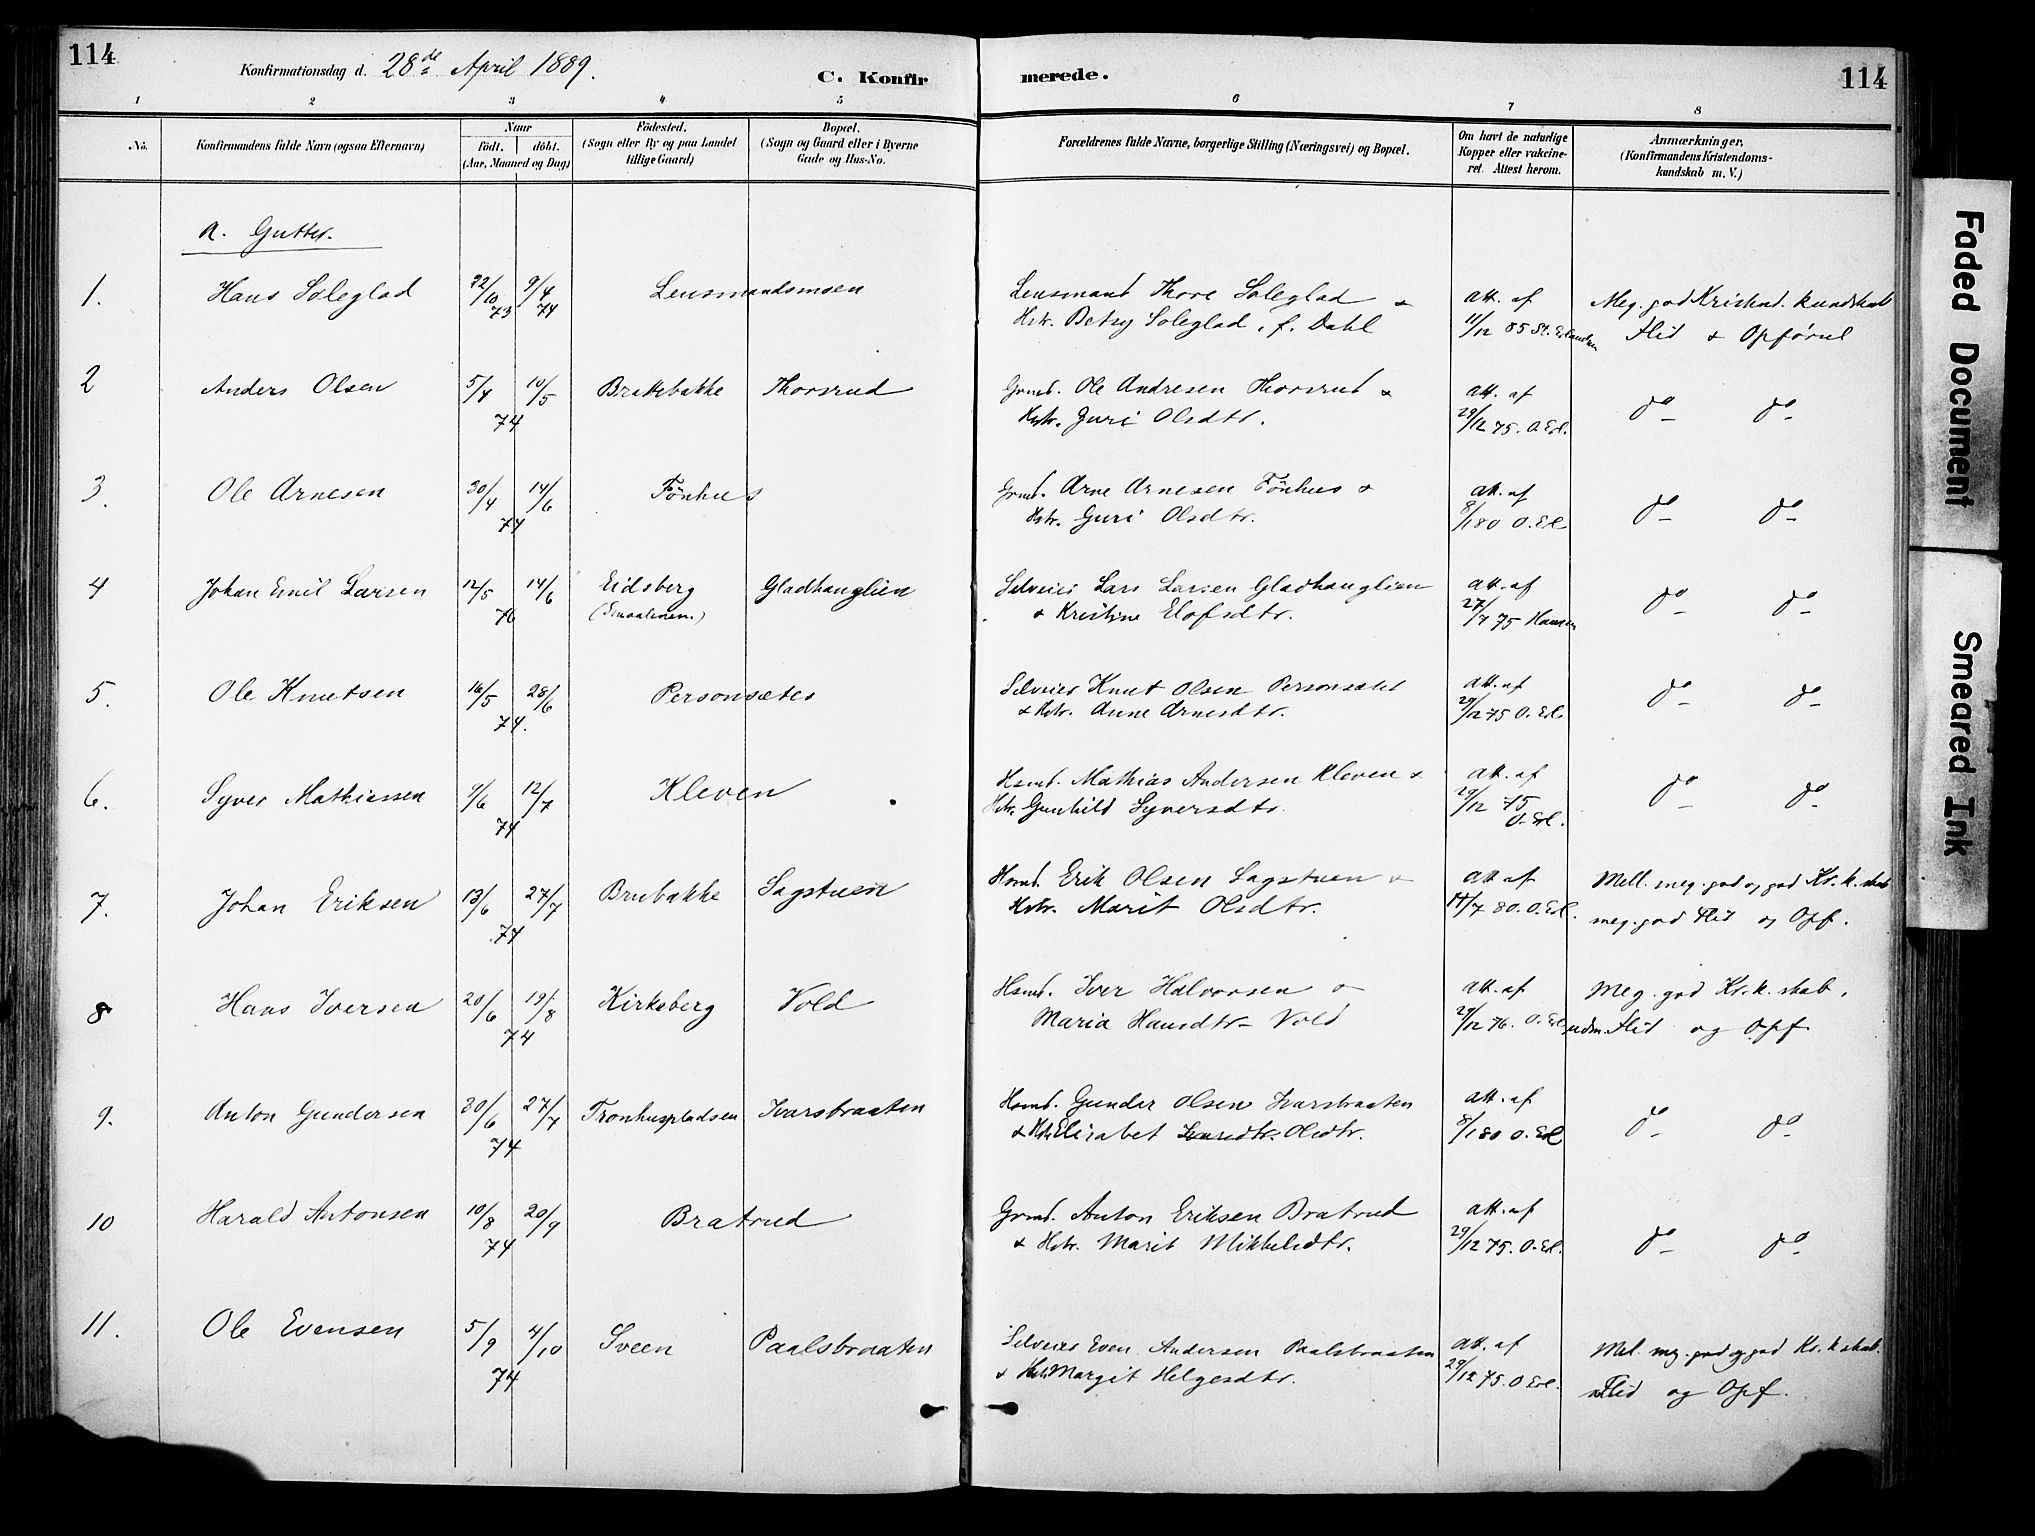 114
Konfirmationsdag d. 28de April 1889.
C. Konfir merede.
114
1 2 3 4 5 6 7 8
No.
Konfirmandens fulde Navn (ogsaa Efternavn)
Naar
födt. döbt.
(Aar, Maaned og Dag)
Födested.
(Sogn eller By og paa Landet
tillige Gaard)
Bopæl.
(Sogn og Gaard eller i Byerne
Gade og Hus-No.
Forældrenes fulde Navne, borgerlige Stilling (Næringsvei) og Bopæl.
Om havt de naturlige
Kopper eller vakcine-
ret. Attest herom.
Anmærkninger.
(Konfirmandens Kristendoms-
kundskab m. V.)
a. Gutter.
1. Hans Soleglad 22/10 73 9/4 74 Lensmandsmoen
Lensmand Thore Soleglad &
Hstr. Betsy Soleglad, f. Dahl
att. af
11/12 85
Meg. god Kristend. kundskab
Flid & Opförsel
2 Anders Olsen 5/4 10/5 74 Brakebakke Thorsrud
Grmd. Ole Andresen Thorsrud &
Hstr. Guri Olsdtr.
att. af
29/12 75. O. Erl.
do do
3. Ole Arnesen 30/4 14/6 74 Fönhus
Grmd. Arne Arnesen Fönhus &
Hstr. Guri Olsdtr.
att. af
8/1 80 O. Erl.
do do
4 Johan Emil Larsen 12/5 14/6 76 Eidsberg Gladhauglien
(Smaalenen.)
Selveier Lars Larsen Gladhauglien
& Kristine Elofsdtr.
att. af
27/7 75 Hansen
do do
5. Ole Knutsen 16/5 28/6 74. Personsætes
Selveier Knut Olsen Personsætet
& Hstr. Anne Arnesdtr.
att. af
29/12 75 O. Erl.
do do
6. Syver Mathiassen 9/6 12/7 74 Kleven
Hsmd. Mathias Andersen Kleven &
Hstr. Gunhild Syversdtr.
att. af
29/12 75
O. Erl.
do do
7. Johan Eriksen 13/6 27/7 74 Brubakke Sagstuen
Hsmd. Erik Olsen Sagstuen &
Hstr. Marit Olsdtr.
att af
14/7 80. O. Erl.
Mell. meg. god og god Kr. k. skab
meg. god Flid og Opf.
8 Hans Iversen 20/6 19/8 74 Kirkeberg Vold
Hsmd. Iver Halvorsen &
Maria Hansdtr Vold
att. af
29/12 76. O. Erl.
Meg. god Kr. k. skab,
udm. Flid og Opf
9. Anton Gundersen 30/6 27/7 74 Tronhuspladsen Ivarsbraaten
Hsmd. Gunder Olsen Ivarsbraaten
& Hstr. Elisabet Olsdtr.
att. af
8/1 80 O. Erl
do do
10 Harald Antonsen 10/8 20/9 74 Bratrud
Grmd. Anton Eriksen Bratrud
& Hstr. Marit Mikkelsdtr.
att. af
29/12 75. O. Erl.
do do
11. Ole Evensen 5/9 4/10 74 Sveen Paalsbraaten
Selveier Even Andersen Paalsbraaten
& Hstr. Margit Helgesdtr.
att. af
29/12 75. O Erl.
Mel. meg. god og god Kr. k skab.
Flid og Opf.
Faded Document
Smeared Ink